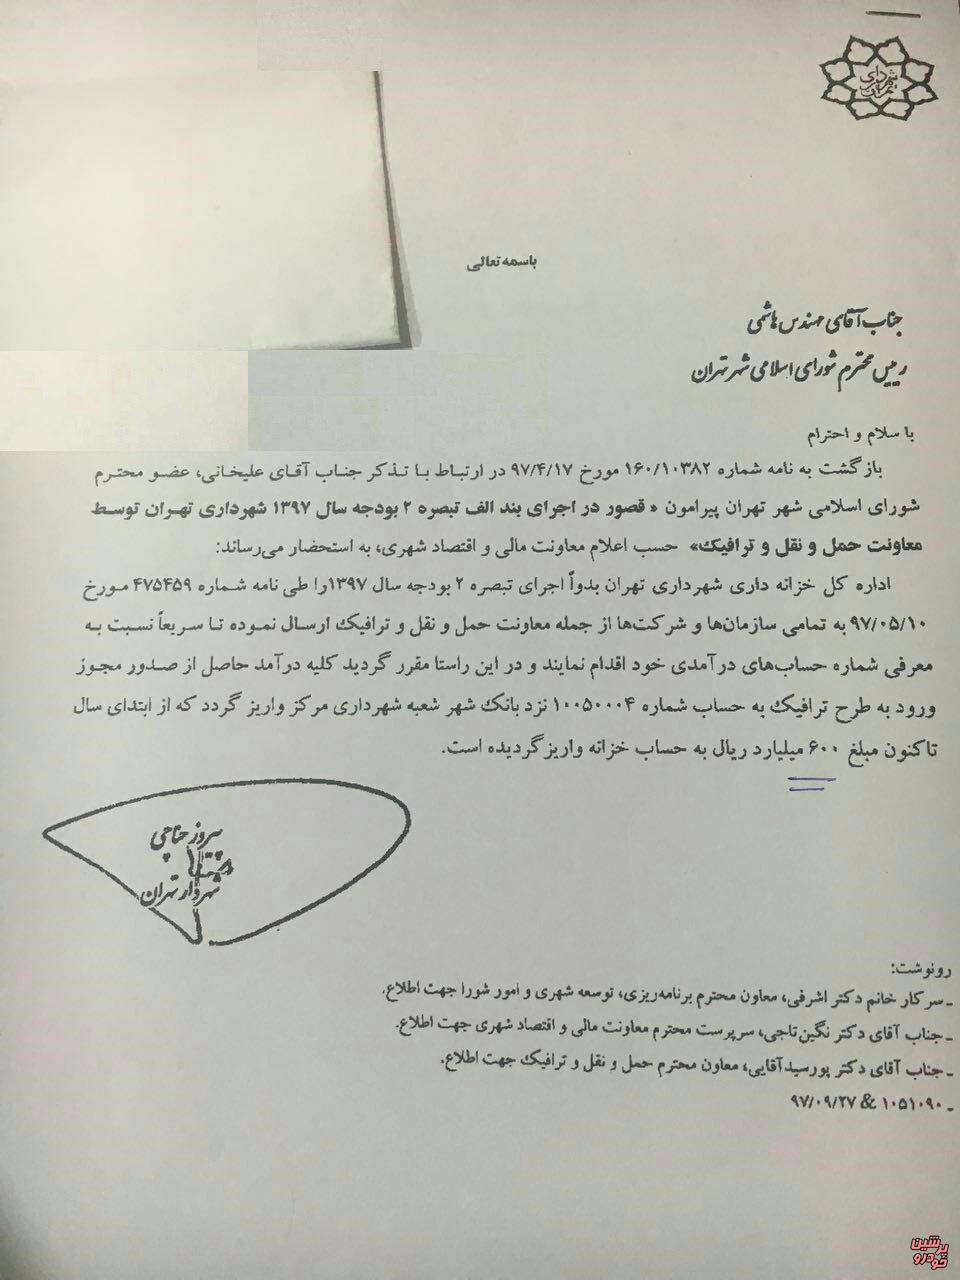 شهرداری تهران
باسمه تعالی
جناب آقای مهندس هاشمی
رییس محترم شورای اسلامی شهر تهران
با سلام و احترام
بازگشت به نامه شماره ۱۶۰/۱۰۳۸۲ مورخ ۹۷/۴/۱۷ در ارتباط با تذکر جناب آقای علیخانی، عضو محترم
شورای اسلامی شهر تهران پیرامون « قصور در اجرای بند الف تبصره ۲ بودجه سال ۱۳۹۷ شهرداری تهران توسط
معاونت حمل و نقل و ترافیک» حسب اعلام معاونت مالی و اقتصاد شهری، به استحضار می‌رساند:
اداره کل خزانه داری شهرداری تهران بدواً اجرای تبصره ۲ بودجه سال ۱۳۹۷را طی نامه شماره ۴۷۵۴۵۹ مورخ
۹۷/۰۵/۱۰ به تمامی سازمان‌ها و شرکت‌ها از جمله معاونت حمل و نقل و ترافیک ارسال نموده تا سریعاً نسبت به
معرفی شماره حساب‌های درآمدی خود اقدام نمایند و در این راستا مقرر گردید کلیه درآمد حاصل از صدور مجوز
ورود به طرح ترافیک به حساب شماره ۱۰۰۵۰۰۰۴ نزد بانک شهر شعبه شهرداری مرکز واریز گردد که از ابتدای سال
تاکنون مبلغ ۶۰۰ میلیارد ریال به حساب خزانه واریز گردیده است.
پیروز حناچی
شهردار تهران
رونوشت:
ـ سرکار خانم دکتر اشرفی، معاون محترم برنامه‌ریزی، توسعه شهری و امور شورا جهت اطلاع.
ـ جناب آقای دکتر نگین‌تاجی، سرپرست محترم معاونت مالی و اقتصاد شهری جهت اطلاع.
ـ جناب آقای دکتر پورسیدآقایی، معاون محترم حمل و نقل و ترافیک جهت اطلاع.
ـ ۱۰۵۱۰۹۰ & ۹۷/۰۹/۲۷
پرشین خودرو